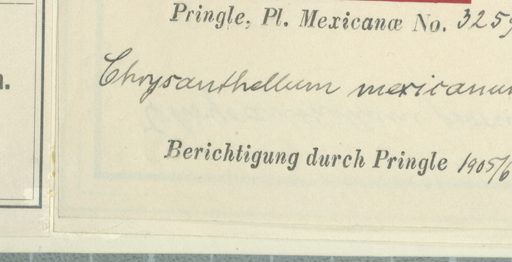 Pringle, Pl. Mexicanæ No. 3259
Chrysanthellum mexicanum
Berichtigung durch Pringle 1905/6